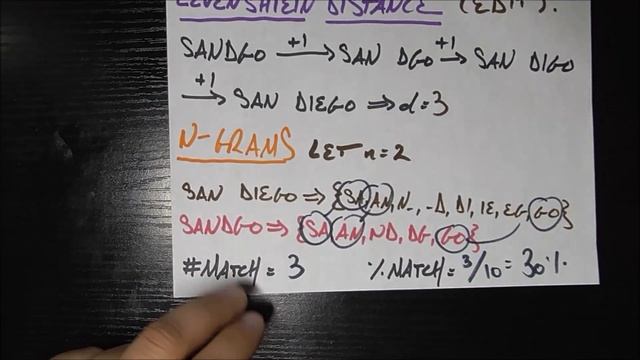 LEVENSHTEIN DISTANCE (EDIT).
SANDGO +1→ SAN DGO +1→ SAN DIGO
+1→ SAN DIEGO ⇒ d=3
N-GRAMS LET n=2
SAN DIEGO ⇒ {SA, AN, N_, _D, DI, IE, EG, GO}
SANDGO ⇒ {SA, AN, ND, DG, GO}
#MATCH = 3 % MATCH = 3/10 = 30%